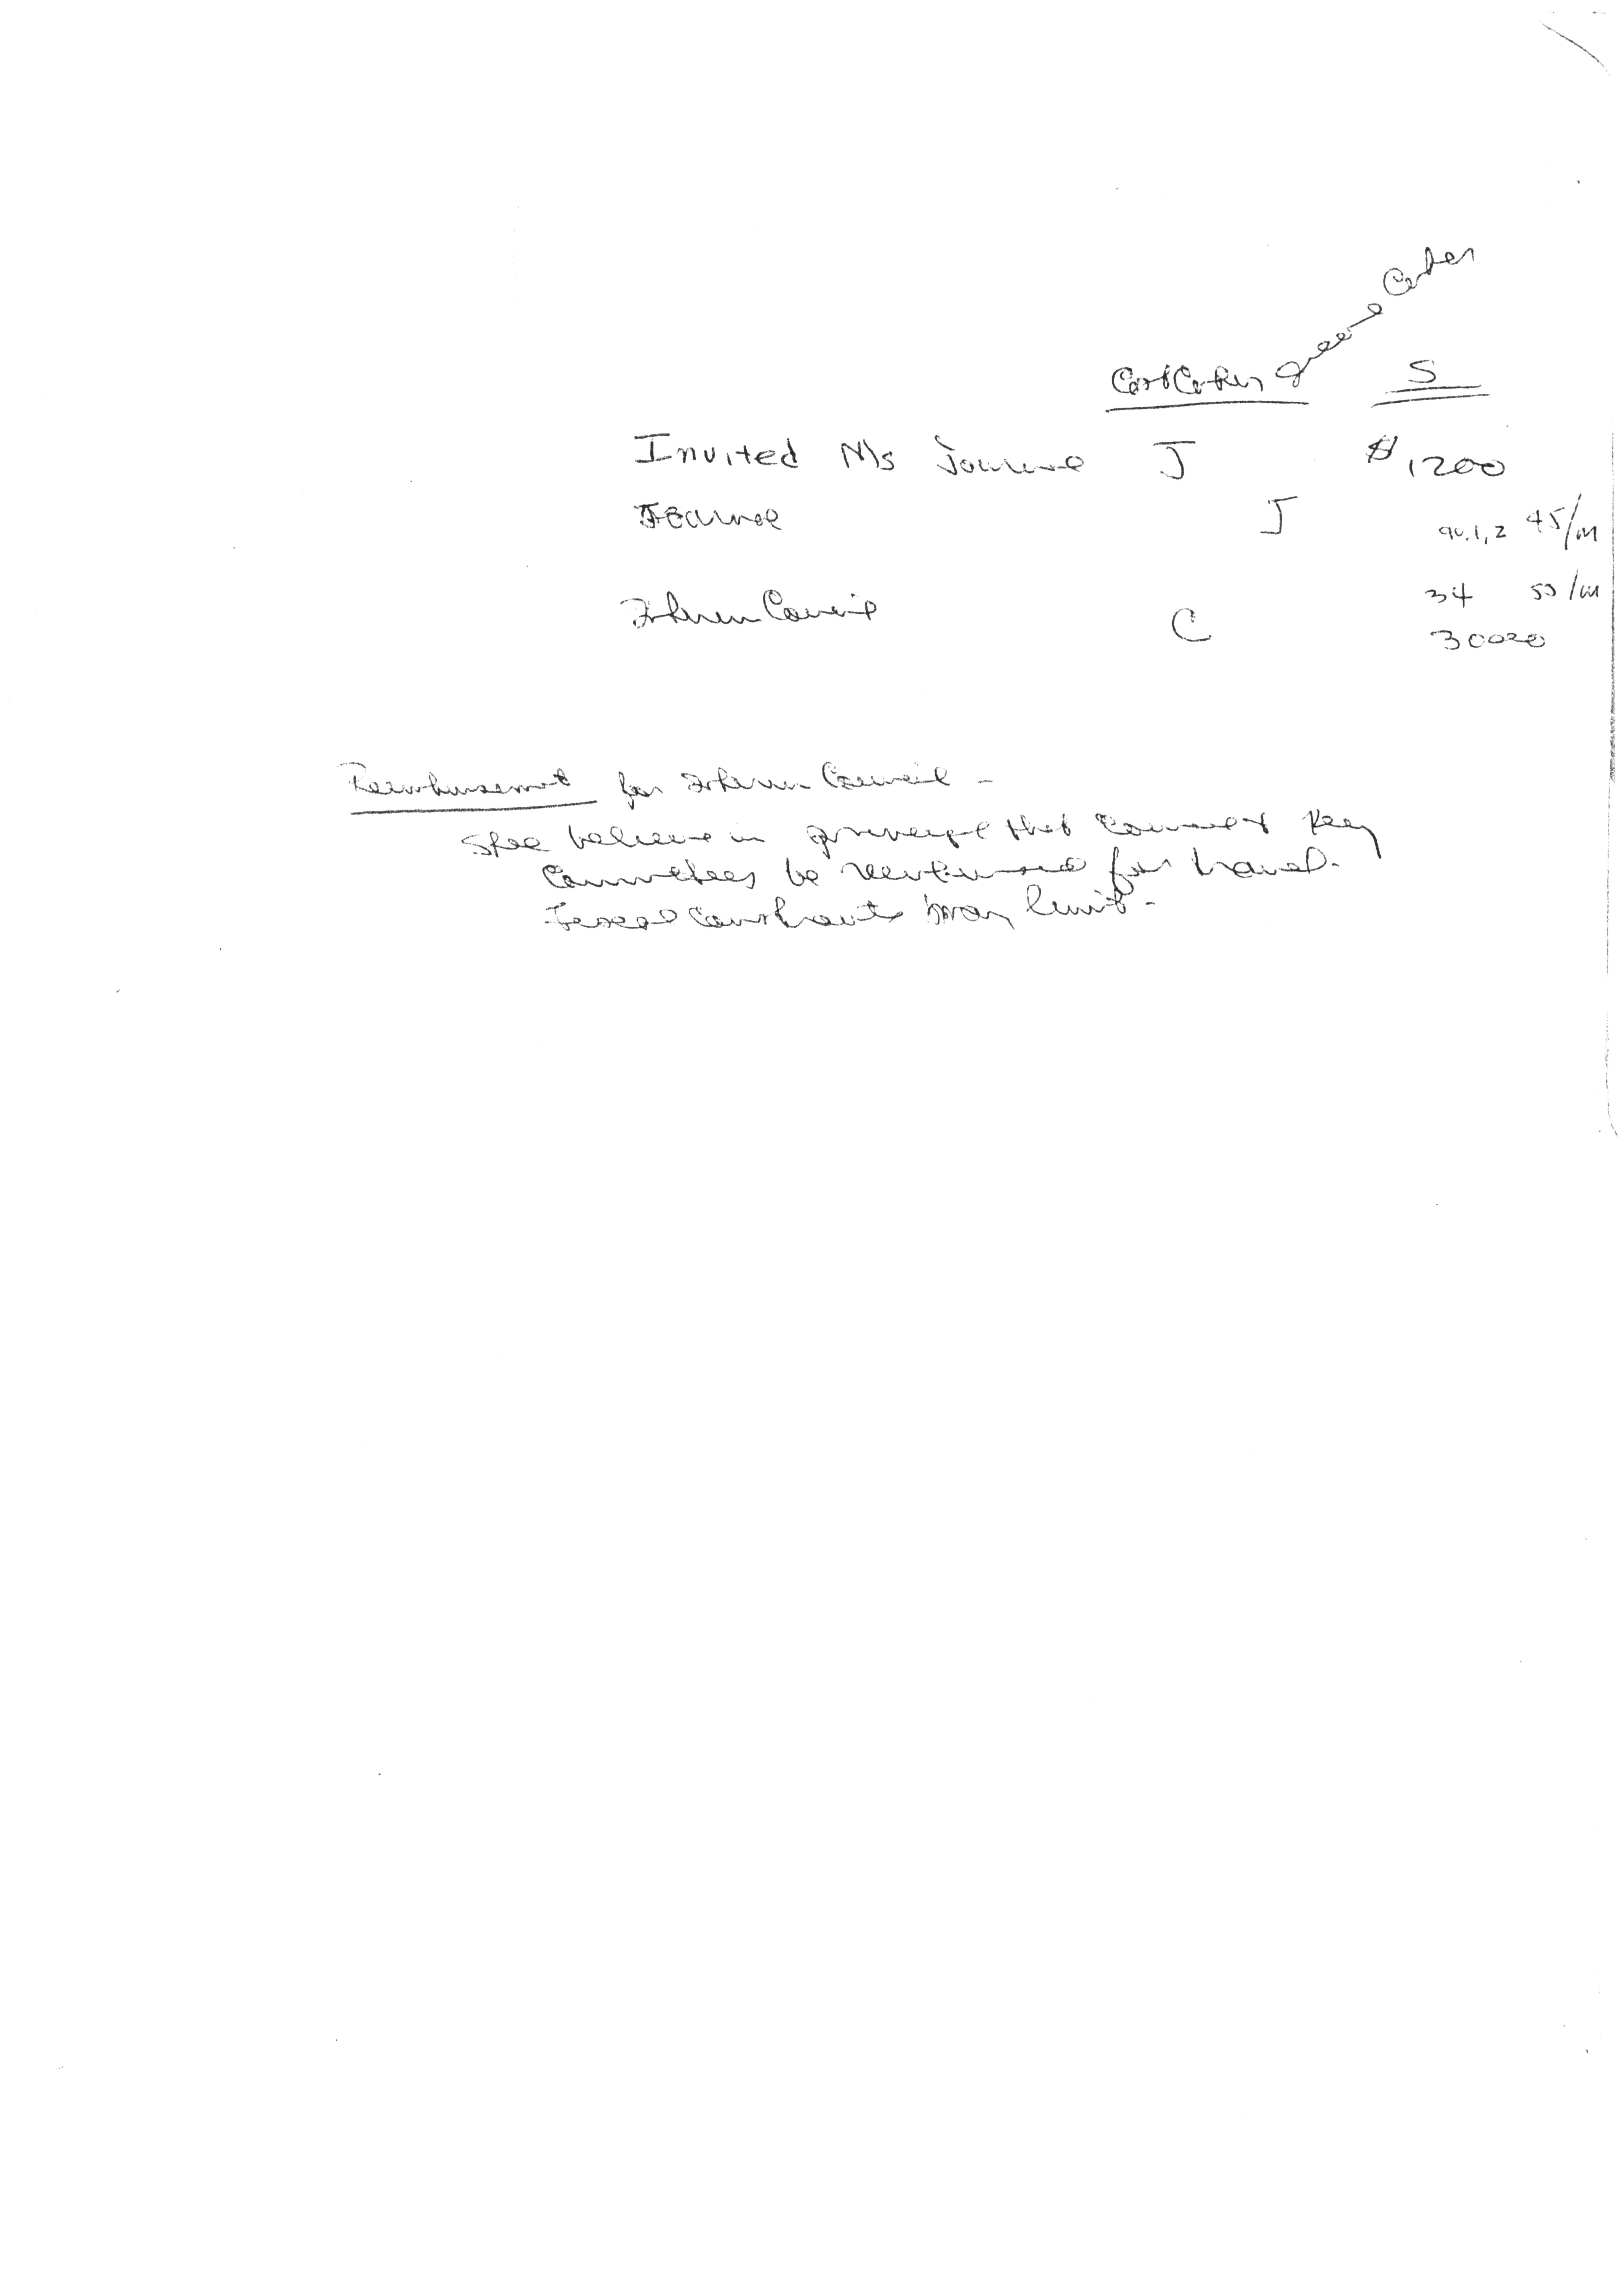 Center
Cost Center
S
Invited Ms Journal J $1200
Journal J 90.1,2 45/m
34 50/m
Interim Council C
30020
Reimbursement for Interim Council -
believe in principle that Council & Key
Committees be reimbursed for travel.
Fiscal Constraints may limit -